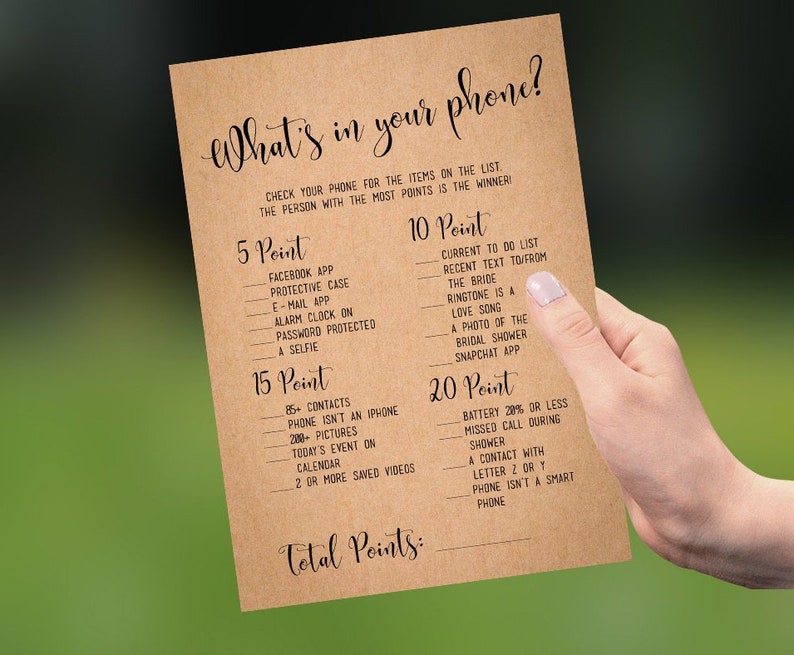 What's in your phone?
CHECK YOUR PHONE FOR THE ITEMS ON THE LIST.
THE PERSON WITH THE MOST POINTS IS THE WINNER!
5 Point
____FACEBOOK APP
____PROTECTIVE CASE
____E-MAIL APP
____ALARM CLOCK ON
____PASSWORD PROTECTED
____A SELFIE
10 Point
____CURRENT TO DO LIST
____RECENT TEXT TO/FROM
THE BRIDE
____RINGTONE IS A
LOVE SONG
____A PHOTO OF THE
BRIDAL SHOWER
____SNAPCHAT APP
15 Point
____85+ CONTACTS
____PHONE ISN'T AN IPHONE
____200+ PICTURES
____TODAY'S EVENT ON
CALENDAR
____2 OR MORE SAVED VIDEOS
20 Point
____BATTERY 20% OR LESS
____MISSED CALL DURING
SHOWER
____A CONTACT WITH
LETTER Z OR Y
____PHONE ISN'T A SMART
PHONE
Total Points: ____________